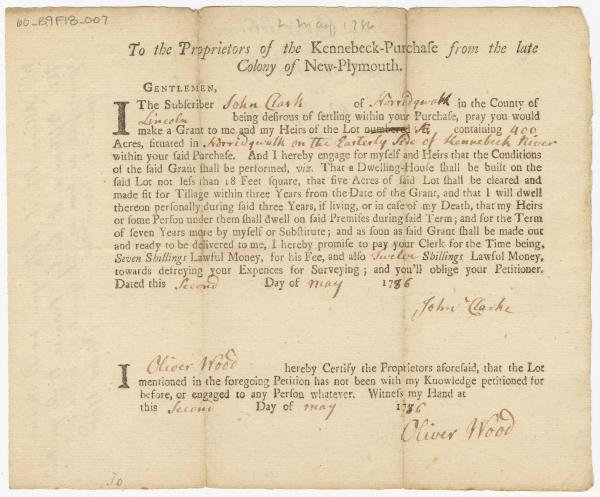 00-89F18-007
May 1786
To the Proprietors of the Kennebeck-Purchase from the late
Colony of New-Plymouth.
GENTLEMEN,
I The Subscriber John Clark of Norridgwalk in the County of
Lincoln being desirous of settling within your Purchase, pray you would
make a Grant to me and my Heirs of the Lot numbered containing 400
Acres, situated in Norridgwalk on the Easterly Side of Kennebeck River
within your said Purchase. And I hereby engage for myself and Heirs that the Conditions
of the said Grant shall be performed, viz. That a Dwelling-House shall be built on the
said Lot not less than 18 Feet square, that five Acres of said Lot shall be cleared and
made fit for Tillage within three Years from the Date of the Grant, and that I will dwell
thereon personally during said three Years, if living, or in case of my Death, that my Heirs
or some Person under them shall dwell on said Premises during said Term; and for the Term
of seven Years more by myself or Substitute; and as soon as said Grant shall be made out
and ready to be delivered to me, I hereby promise to pay your Clerk for the Time being,
Seven Shillings Lawful Money, for his Fee, and also Twelve Shillings Lawful Money,
towards defreying your Expences for Surveying; and you'll oblige your Petitioner.
Dated this Second Day of may 1786
John Clarke
I Oliver Wood hereby Certify the Proprietors aforesaid, that the Lot
mentioned in the foregoing Petition has not been with my Knowledge petitioned for
before, or engaged to any Person whatever. Witness my Hand at
this Second Day of may 1786
Oliver Wood